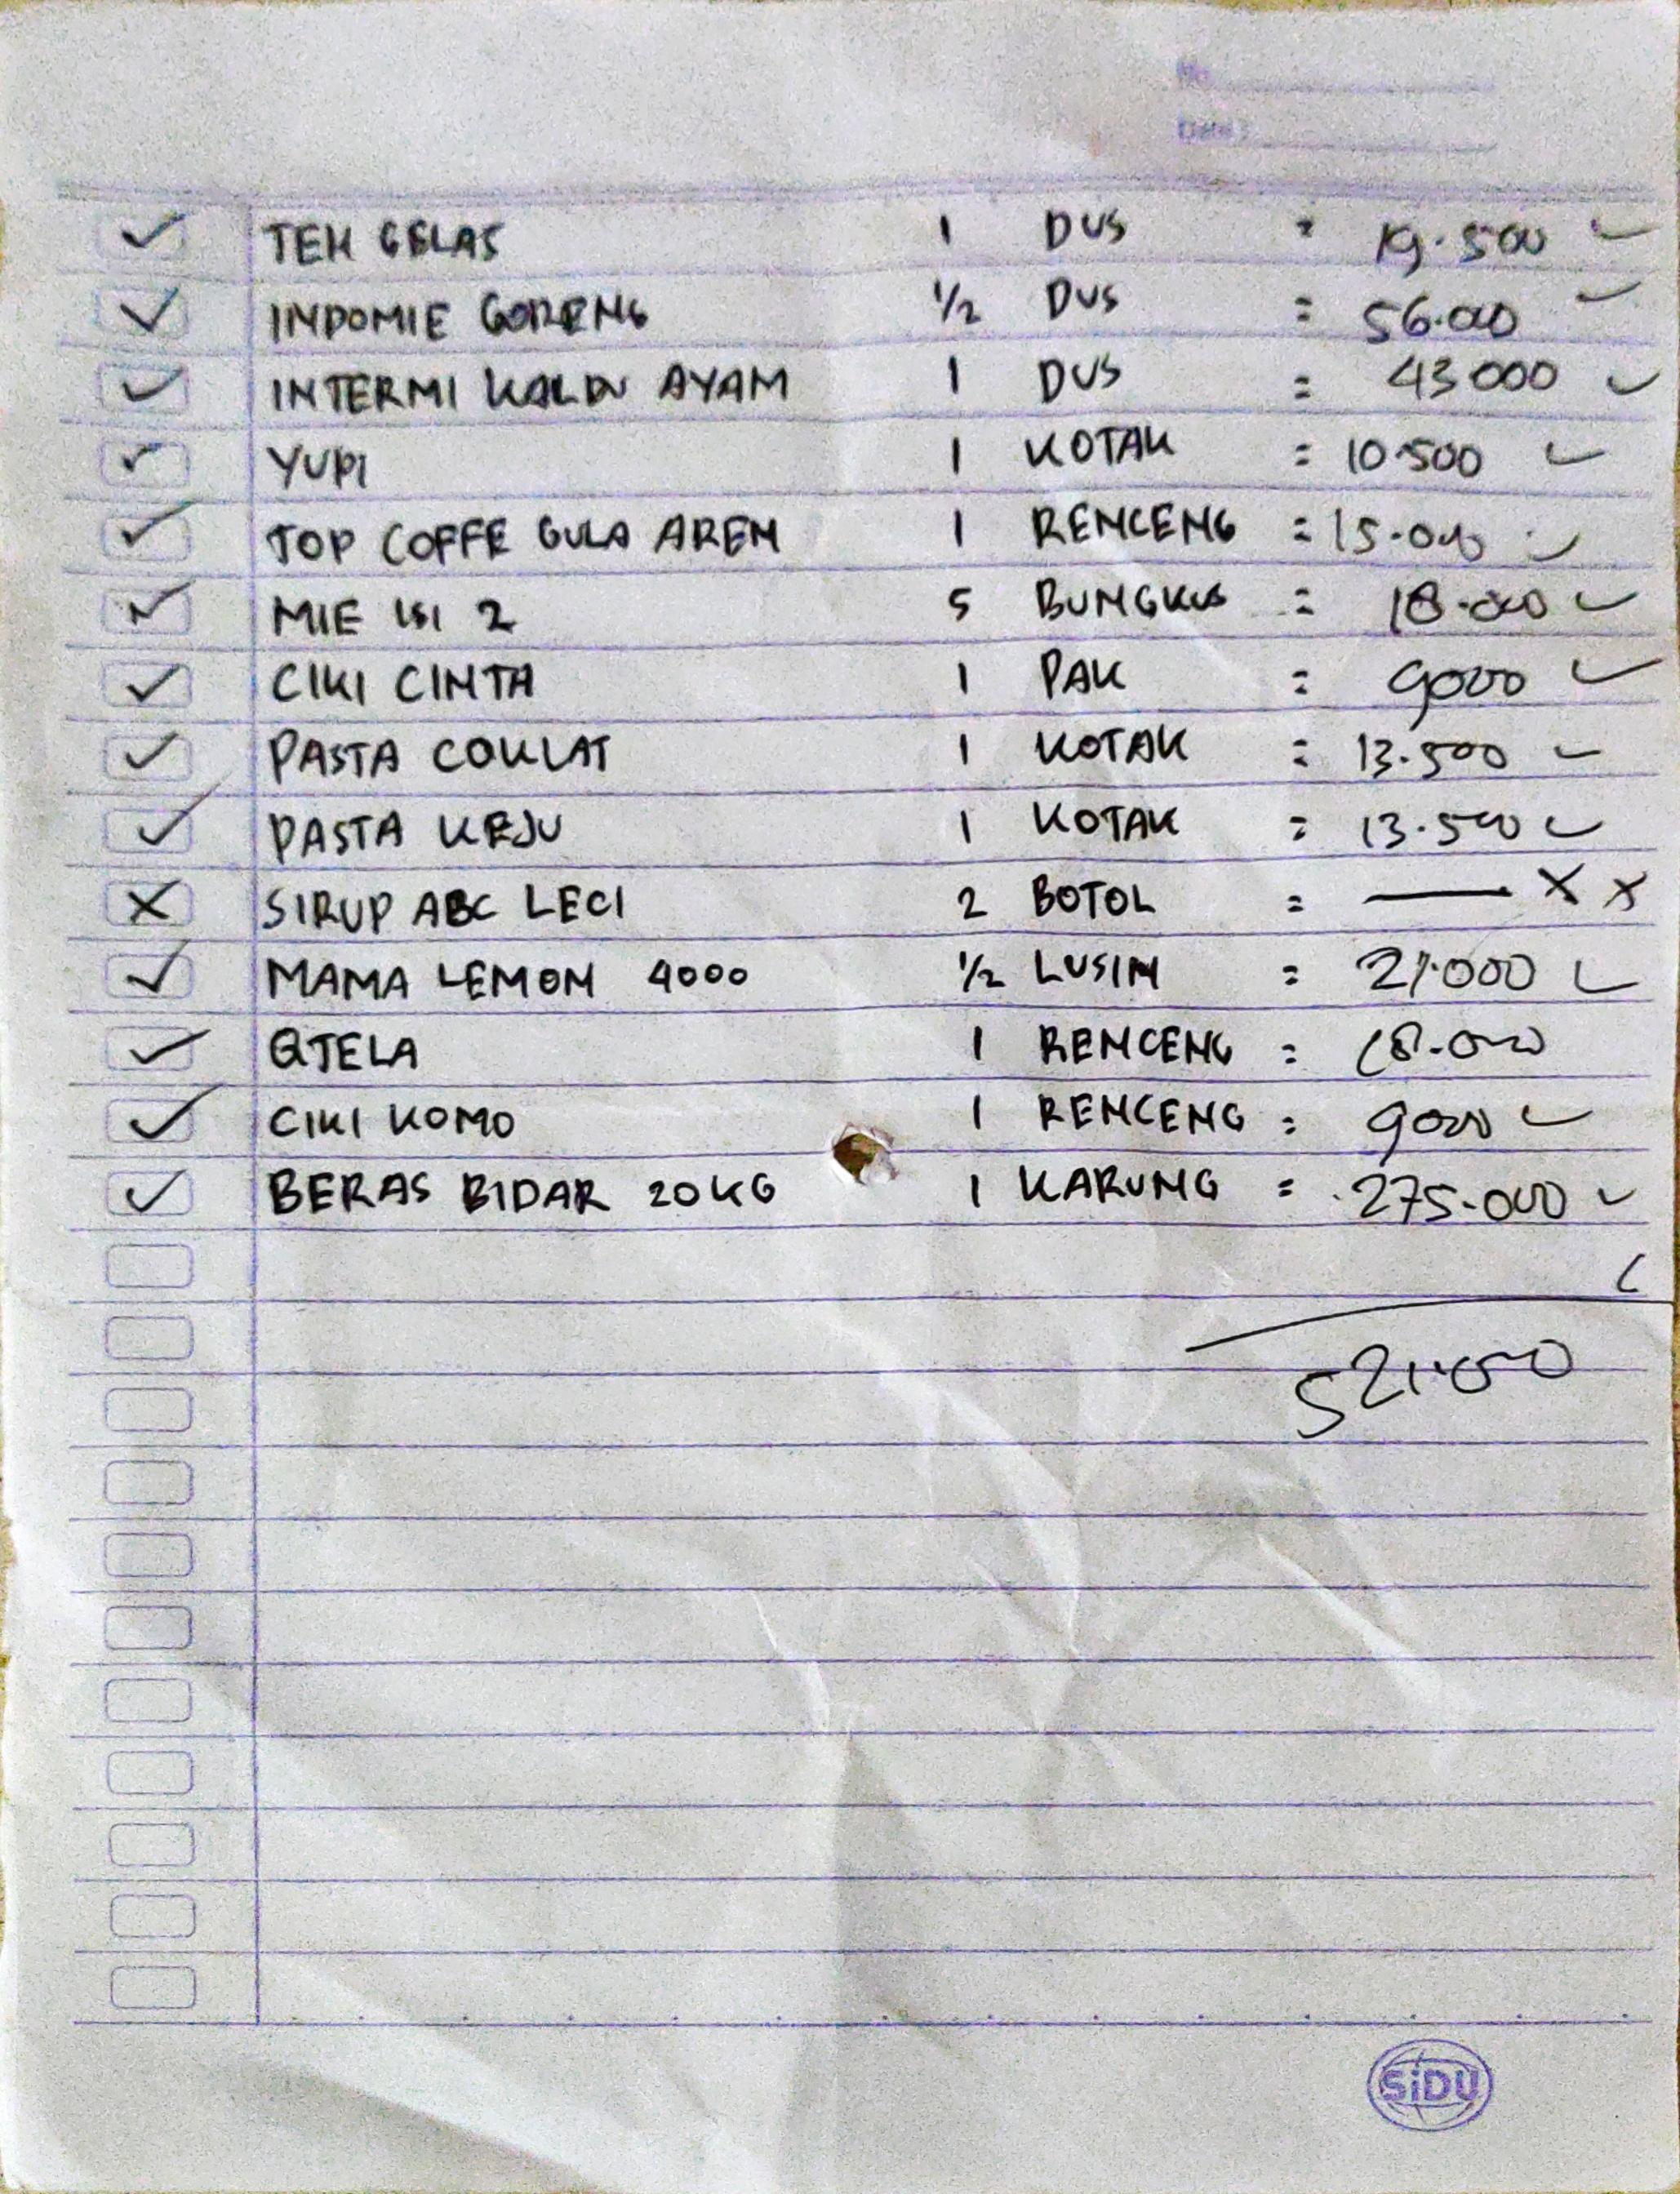 No.
Date :
✓ TEH GELAS 1 DUS = 19.500 ✓
✓ INDOMIE GORENG 1/2 DUS = 56.000 ✓
✓ INTERMI KALDU AYAM 1 DUS = 43000 ✓
✓ YUPI 1 KOTAK = 10.500 ✓
✓ TOP COFFE GULA AREN 1 RENCENG = 15.000 ✓
✓ MIE ISI 2 5 BUNGKUS = 18.000 ✓
✓ CIKI CINTA 1 PAK = 9000 ✓
✓ PASTA COKLAT 1 KOTAK = 13.500 ✓
✓ PASTA KEJU 1 KOTAK = 13.500 ✓
X SIRUP ABC LECI 2 BOTOL = — X X
✓ MAMA LEMON 4000 1/2 LUSIN = 21.000 ✓
✓ QTELA 1 RENCENG = 18.000
✓ CIKI KOMO 1 RENCENG = 9000 ✓
✓ BERAS BIDAR 20KG 1 KARUNG = 275.000 ✓
521.000
SiDU